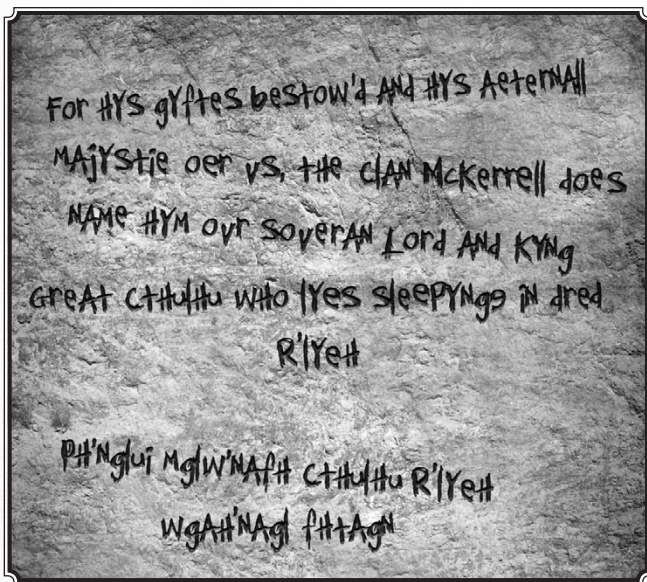 For HYS gYftes bestow'd ANd HYS AeterNAll
MAjYStie oer vS, tHe clAN McKerrell does
NAMe HYM ovr SoverAN Lord ANd KYNg
GreAt CtHulHu WHo lYes SleePYNge iN dred
R'lYeH
PH'Nglui MglW'NAfH CtHulHu R'lYeH
WgAH'NAgl fHtAgN